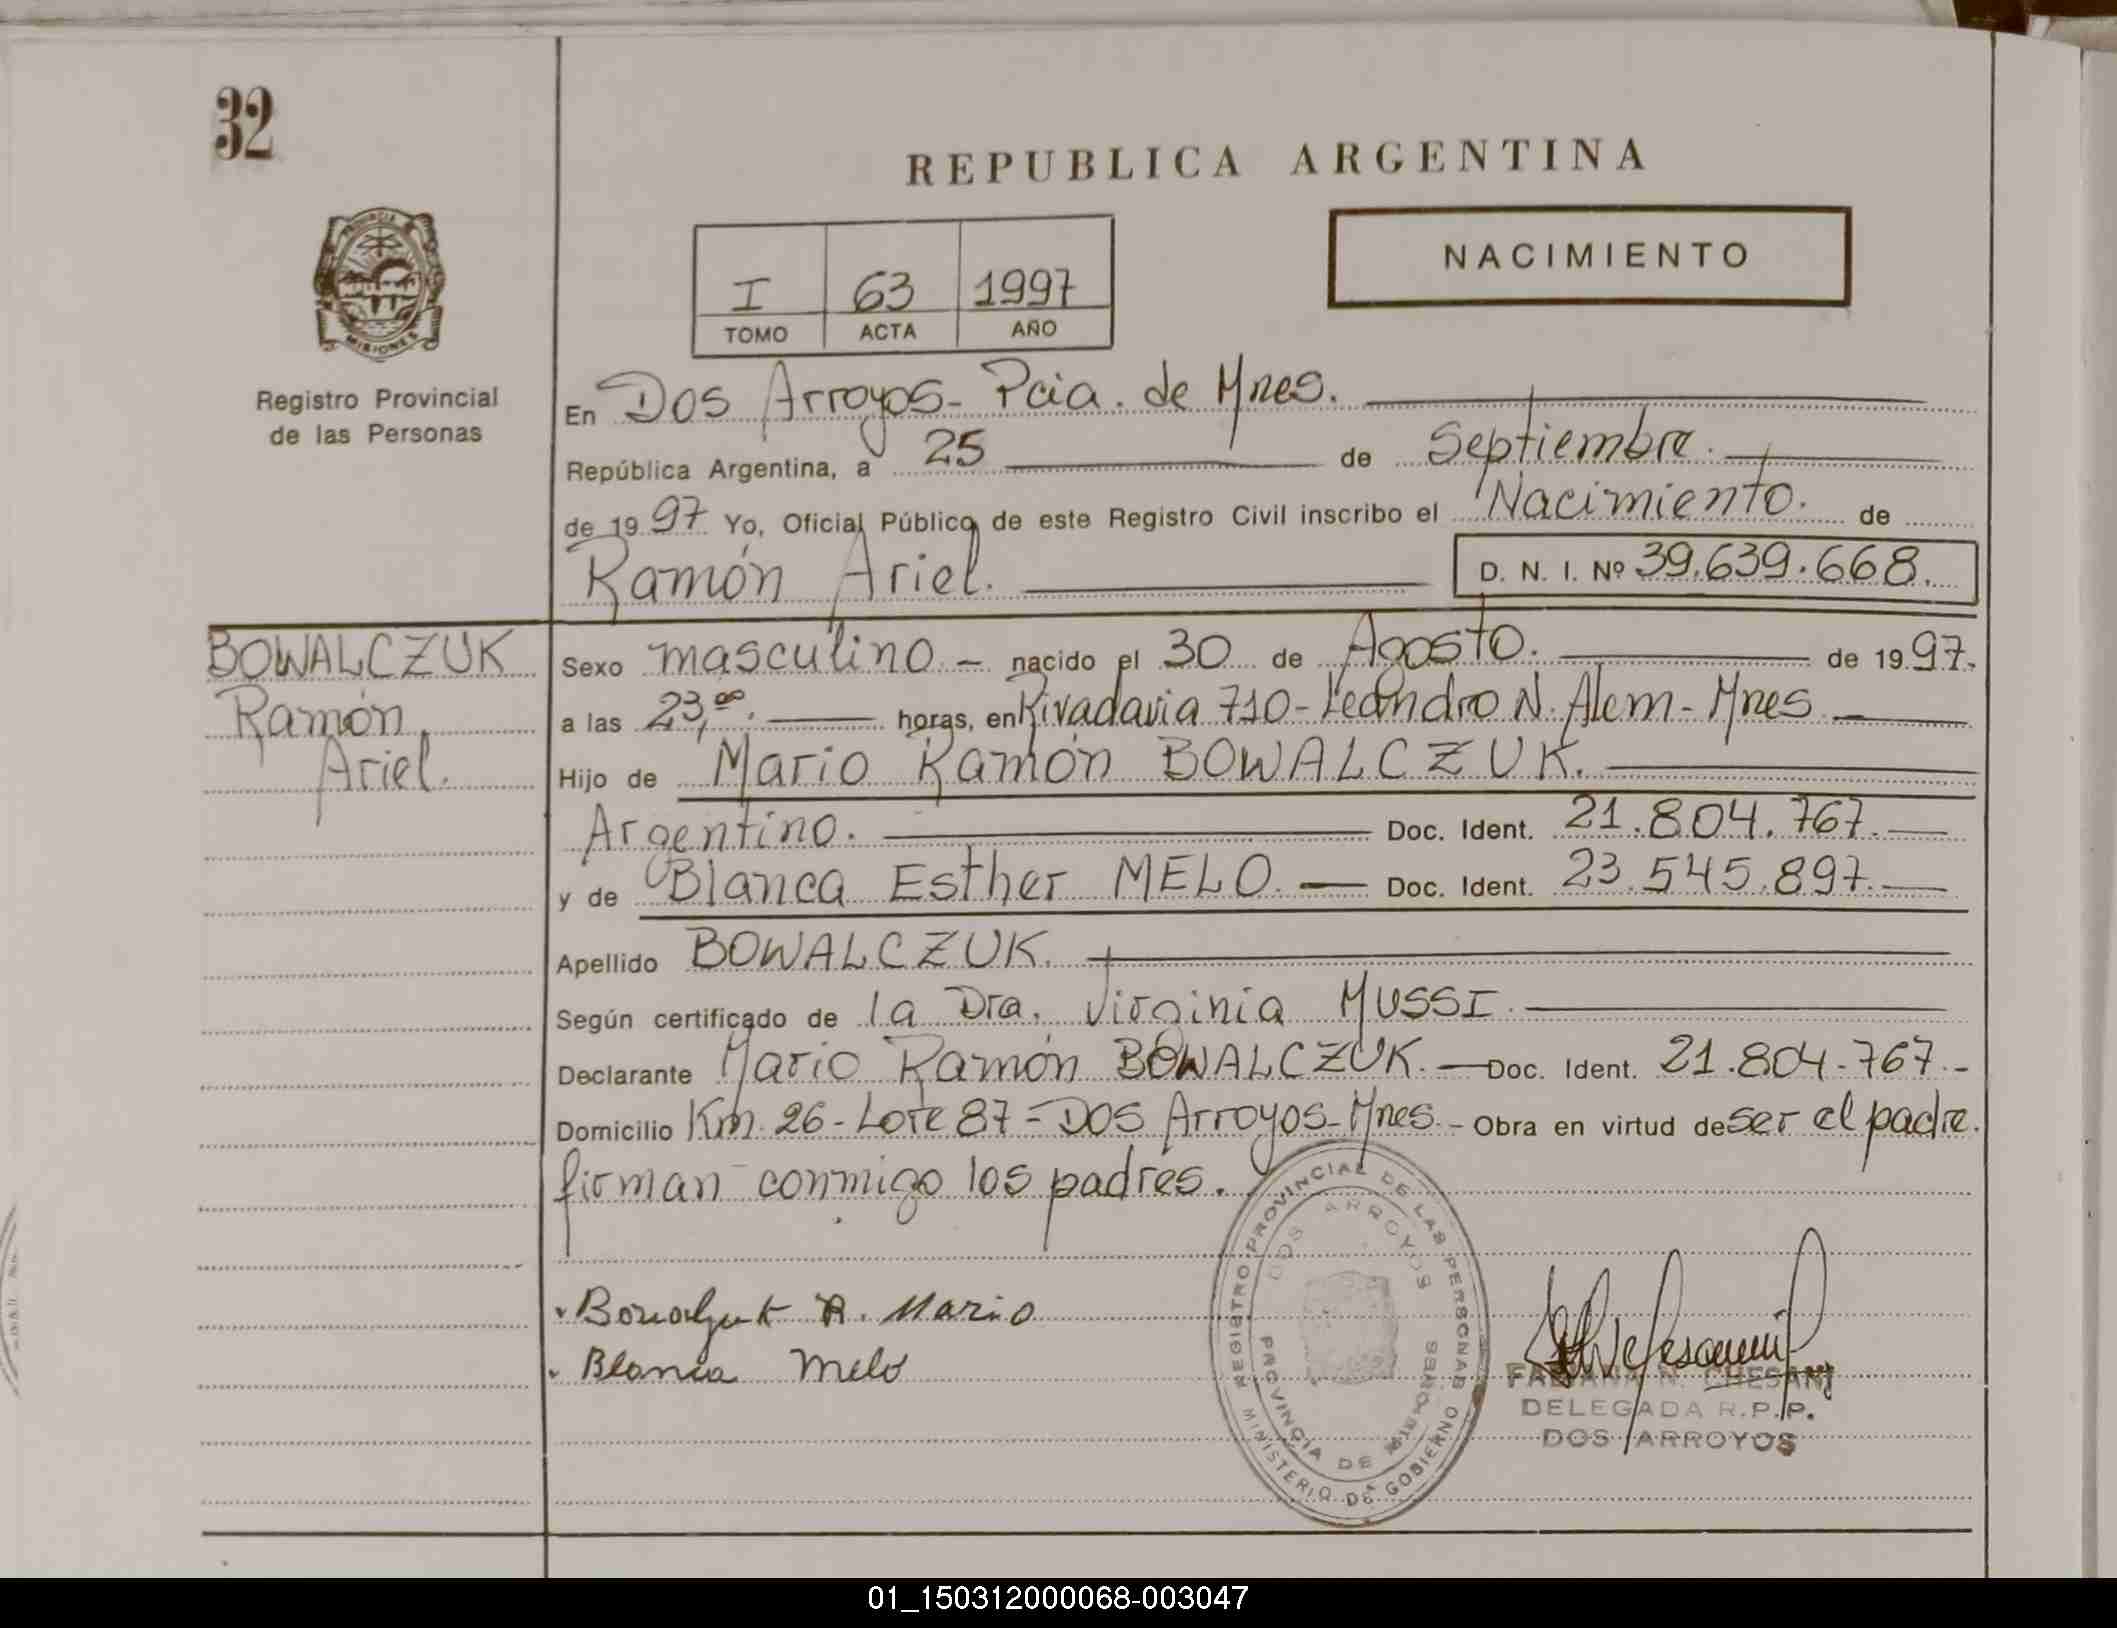 32
REPUBLICA ARGENTINA
NACIMIENTO
I 63 1997
TOMO ACTA AÑO
PROVINCIA
MISIONES
Registro Provincial
de las Personas
En Dos Arroyos- Pcia. de Mnes.
República Argentina, a 25 de Septiembre.
de 1997. Yo, Oficial Público de este Registro Civil inscribo el Nacimiento. de
Ramón Ariel. D. N. I. Nº 39.639.668.
BOWALCZUK
Ramón
Ariel.
Sexo masculino - nacido el 30 de Agosto. de 1997.
a las 23,00. horas, en Rivadavia 710- Leandro N. Alem- Mnes
Hijo de Mario Ramón BOWALCZUK.
Argentino. Doc. Ident. 21.804.767.
y de Blanca Esther MELO. Doc. Ident. 23.545.897.
Apellido BOWALCZUK.
Según certificado de la Dra. Virginia MUSSI.
Declarante Mario Ramón BOWALCZUK. Doc. Ident. 21.804.767.-
Domicilio Km. 26- Lote 87- Dos Arroyos- Mnes. - Obra en virtud de ser el padre.
firman conmigo los padres.
REGISTRO PROVINCIAL DE LAS PERSONAS
MINISTERIO DE GOBIERNO
DOS ARROYOS
PROVINCIA DE MISIONES
R. Mario
Blanca Melo
FABIANA N. CHESANI
DELEGADA R.P.P.
DOS ARROYOS
01_150312000068-003047